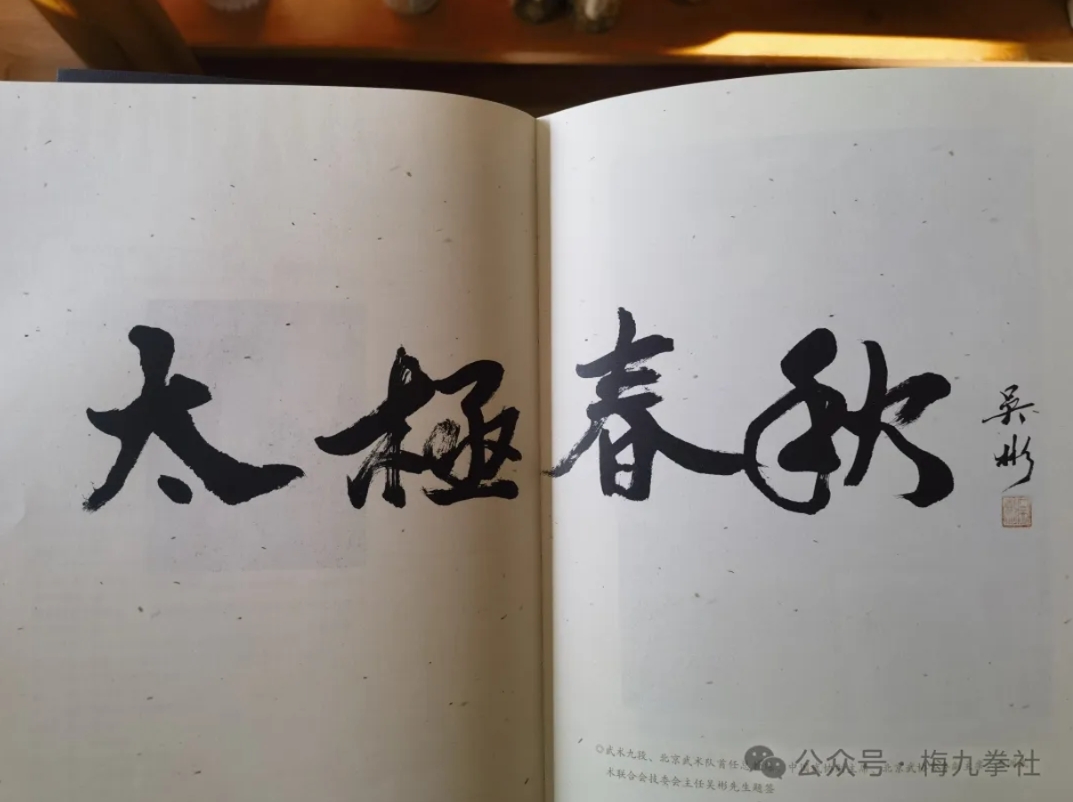 太極春秋
吴彬
◎武术九段、北京武术队首任
术联合会技委会主任吴彬先生题签
公众号·梅九拳社